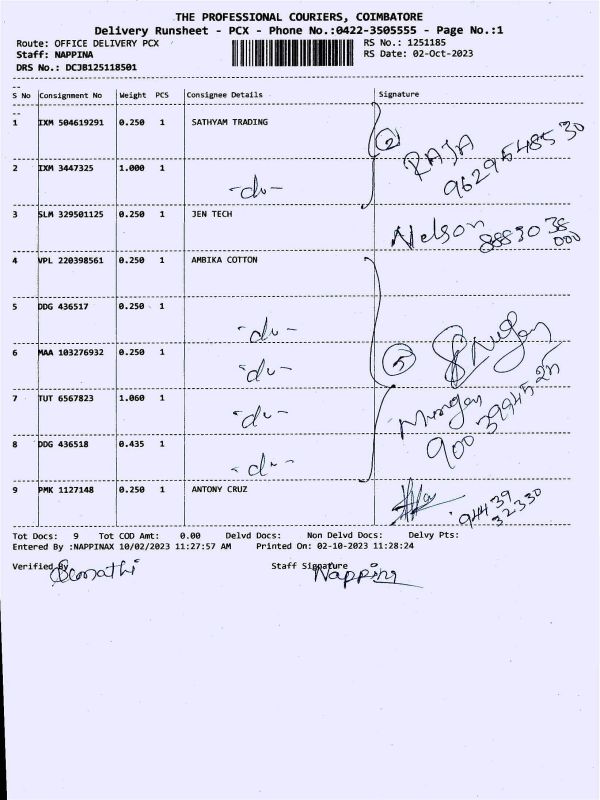 THE PROFESSIONAL COURIERS, COIMBATORE
Delivery Runsheet - PCX - Phone No.:0422-3505555 - Page No.:1
Route: OFFICE DELIVERY PCX RS No.: 1251185
Staff: NAPPINA RS Date: 02-Oct-2023
DRS No.: DCJB125118501
S No Consignment No Weight PCS Consignee Details Signature
1 IXM 504619291 0.250 1 SATHYAM TRADING
2 RAJA
9629548530
2 IXM 3447325 1.000 1 -do-
3 SLM 329501125 0.250 1 JEN TECH Nelson 8883038
000
4 VPL 220398561 0.250 1 AMBIKA COTTON
5 DDG 436517 0.250 1 -do-
6 MAA 103276932 0.250 1 -do- 5
7 TUT 6567823 1.060 1 -do- Murugan
900
8 DDG 436518 0.435 1 -do-
9 PMK 1127148 0.250 1 ANTONY CRUZ 944439
32330
Tot Docs: 9 Tot COD Amt: 0.00 Delvd Docs: Non Delvd Docs: Delvy Pts:
Entered By :NAPPINAX 10/02/2023 11:27:57 AM Printed On: 02-10-2023 11:28:24
Verified By Staff Signature
Nappina